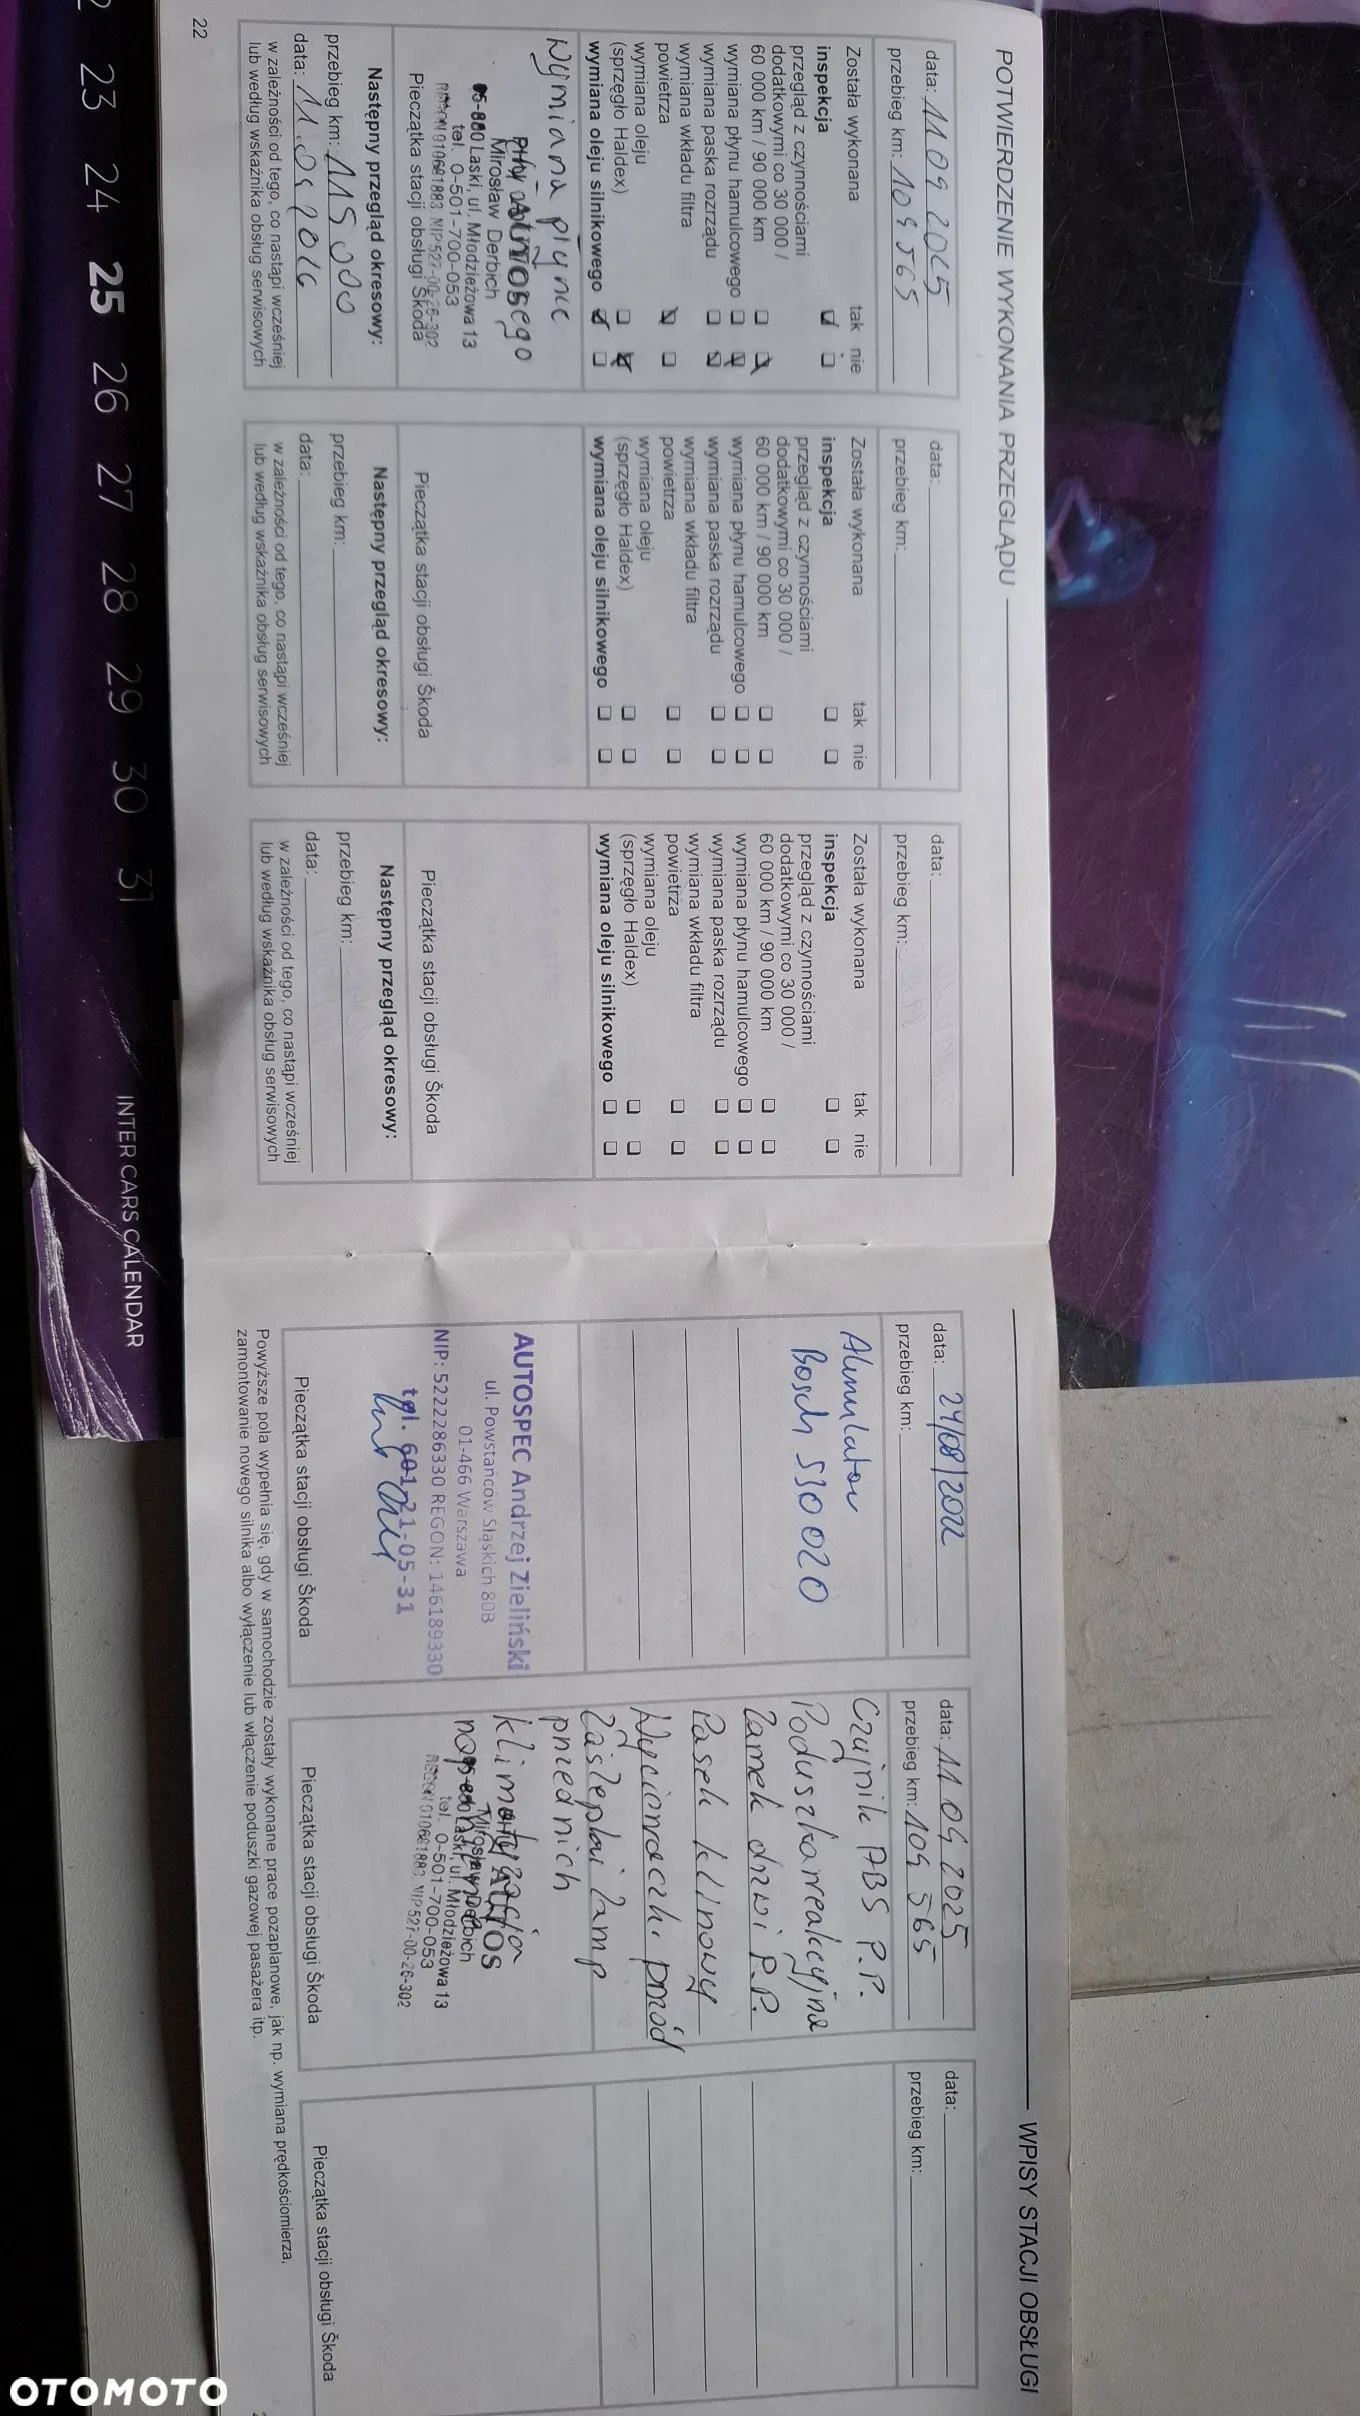 POTWIERDZENIE WYKONANIA PRZEGLĄDU
data: 11 09 2025
przebieg km: 109 565
Została wykonana tak nie
inspekcja
przegląd z czynnościami
dodatkowymi co 30 000 /
60 000 km / 90 000 km
wymiana płynu hamulcowego
wymiana paska rozrządu
wymiana wkładu filtra
powietrza
wymiana oleju
(sprzęgło Haldex)
wymiana oleju silnikowego
Wymiana płynu
Mirosław Derbich
05-880 Laski, ul. Młodzieżowa 13
tel. 0-501-700-053
REGON 010681883 NIP 527-00-26-302
Pieczątka stacji obsługi Škoda
Następny przegląd okresowy:
przebieg km: 115 000
data: 11.09 2026
w zależności od tego, co nastąpi wcześniej
lub według wskaźnika obsług serwisowych
22
data:
przebieg km:
Została wykonana tak nie
inspekcja
przegląd z czynnościami
dodatkowymi co 30 000 /
60 000 km / 90 000 km
wymiana płynu hamulcowego
wymiana paska rozrządu
wymiana wkładu filtra
powietrza
wymiana oleju
(sprzęgło Haldex)
wymiana oleju silnikowego
Pieczątka stacji obsługi Škoda
Następny przegląd okresowy:
przebieg km:
data:
w zależności od tego, co nastąpi wcześniej
lub według wskaźnika obsług serwisowych
data:
przebieg km:
Została wykonana tak nie
inspekcja
przegląd z czynnościami
dodatkowymi co 30 000 /
60 000 km / 90 000 km
wymiana płynu hamulcowego
wymiana paska rozrządu
wymiana wkładu filtra
powietrza
wymiana oleju
(sprzęgło Haldex)
wymiana oleju silnikowego
Pieczątka stacji obsługi Škoda
Następny przegląd okresowy:
przebieg km:
data:
w zależności od tego, co nastąpi wcześniej
lub według wskaźnika obsług serwisowych
WPISY STACJI OBSŁUGI
data: 24/08/2022
przebieg km:
Akumulator
Bosch S30 020
AUTOSPEC Andrzej Zieliński
ul. Powstańców Śląskich 80B
01-466 Warszawa
NIP: 5222286330 REGON: 146189330
tel. 601-21-05-31
Pieczątka stacji obsługi Škoda
data: 11 09 2025
przebieg km: 109 565
Czujnik ABS P.P.
Poduszka reakcyjna
Zamek drzwi P.P.
Pasek klinowy
Wycieraczki przód
Zaślepki lamp
przednich
klimatyzacja
tel. 0-501-700-053
REGON 010681883 NIP 527-00-26-302
Pieczątka stacji obsługi Škoda
data:
przebieg km:
Pieczątka stacji obsługi Škoda
Powyższe pola wypełnia się, gdy w samochodzie zostały wykonane prace pozaplanowe, jak np. wymiana prędkościomierza,
zamontowanie nowego silnika albo wyłączenie lub włączenie poduszki gazowej pasażera itp.
23 24 25 26 27 28 29 30 31
INTER CARS CALENDAR
OTOMOTO